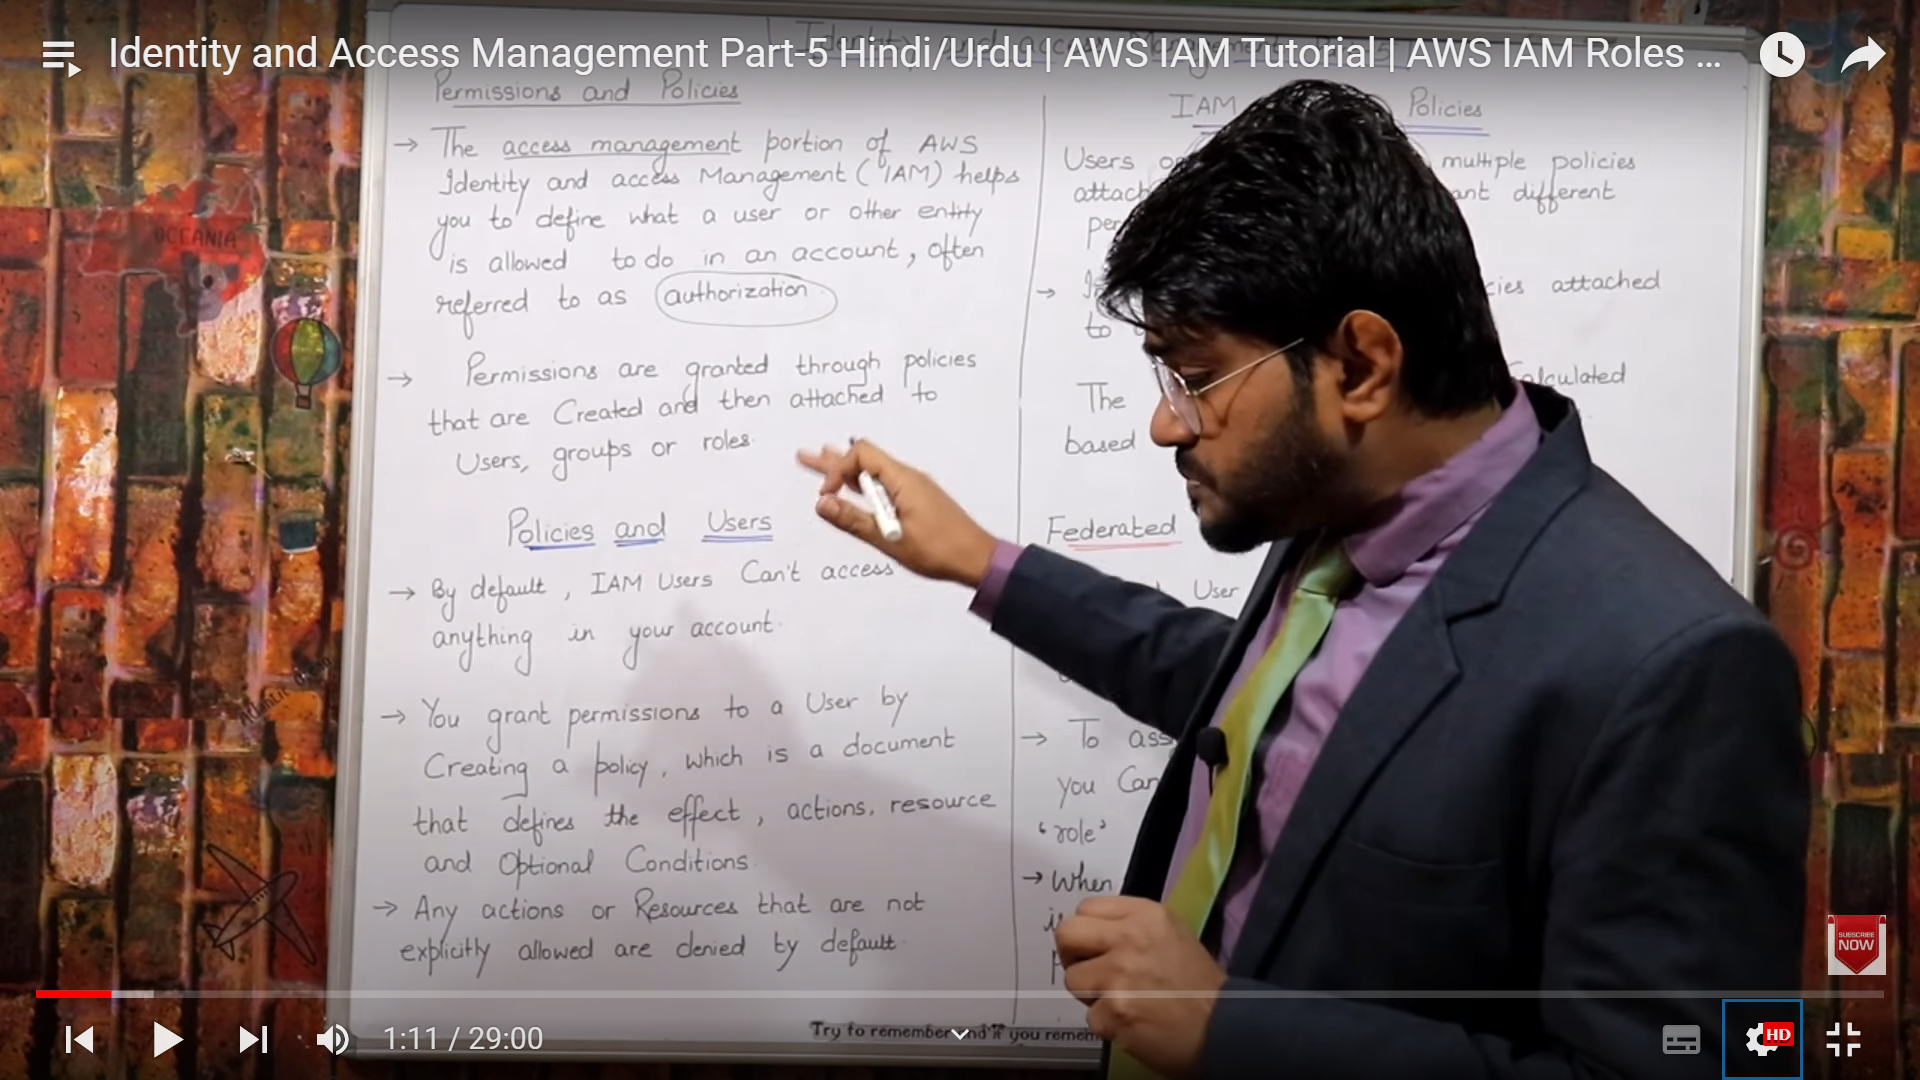 Identity and Access Management Part-5 Hindi/Urdu | AWS IAM Tutorial | AWS IAM Roles ...
Permissions and Policies
→ The access management portion of AWS
Identity and access Management (IAM) helps
you to define what a user or other entity
is allowed to do in an account, often
referred to as authorization
→ Permissions are granted through policies
that are Created and then attached to
Users, groups or roles.
Policies and Users
→ By default, IAM Users Can't access
anything in your account.
→ You grant permissions to a User by
Creating a policy, which is a document
that defines the effect, actions, resource
and Optional Conditions.
→ Any actions or Resources that are not
explicitly allowed are denied by default.
IAM Policies
Users multiple policies
attach different
→ attached
to
The Calculated
based
Federated
User
→ To
you Can
'role'
→ When
OCEANIA
SUBSCRIBE
NOW
Try to remember
1:11 / 29:00
HD